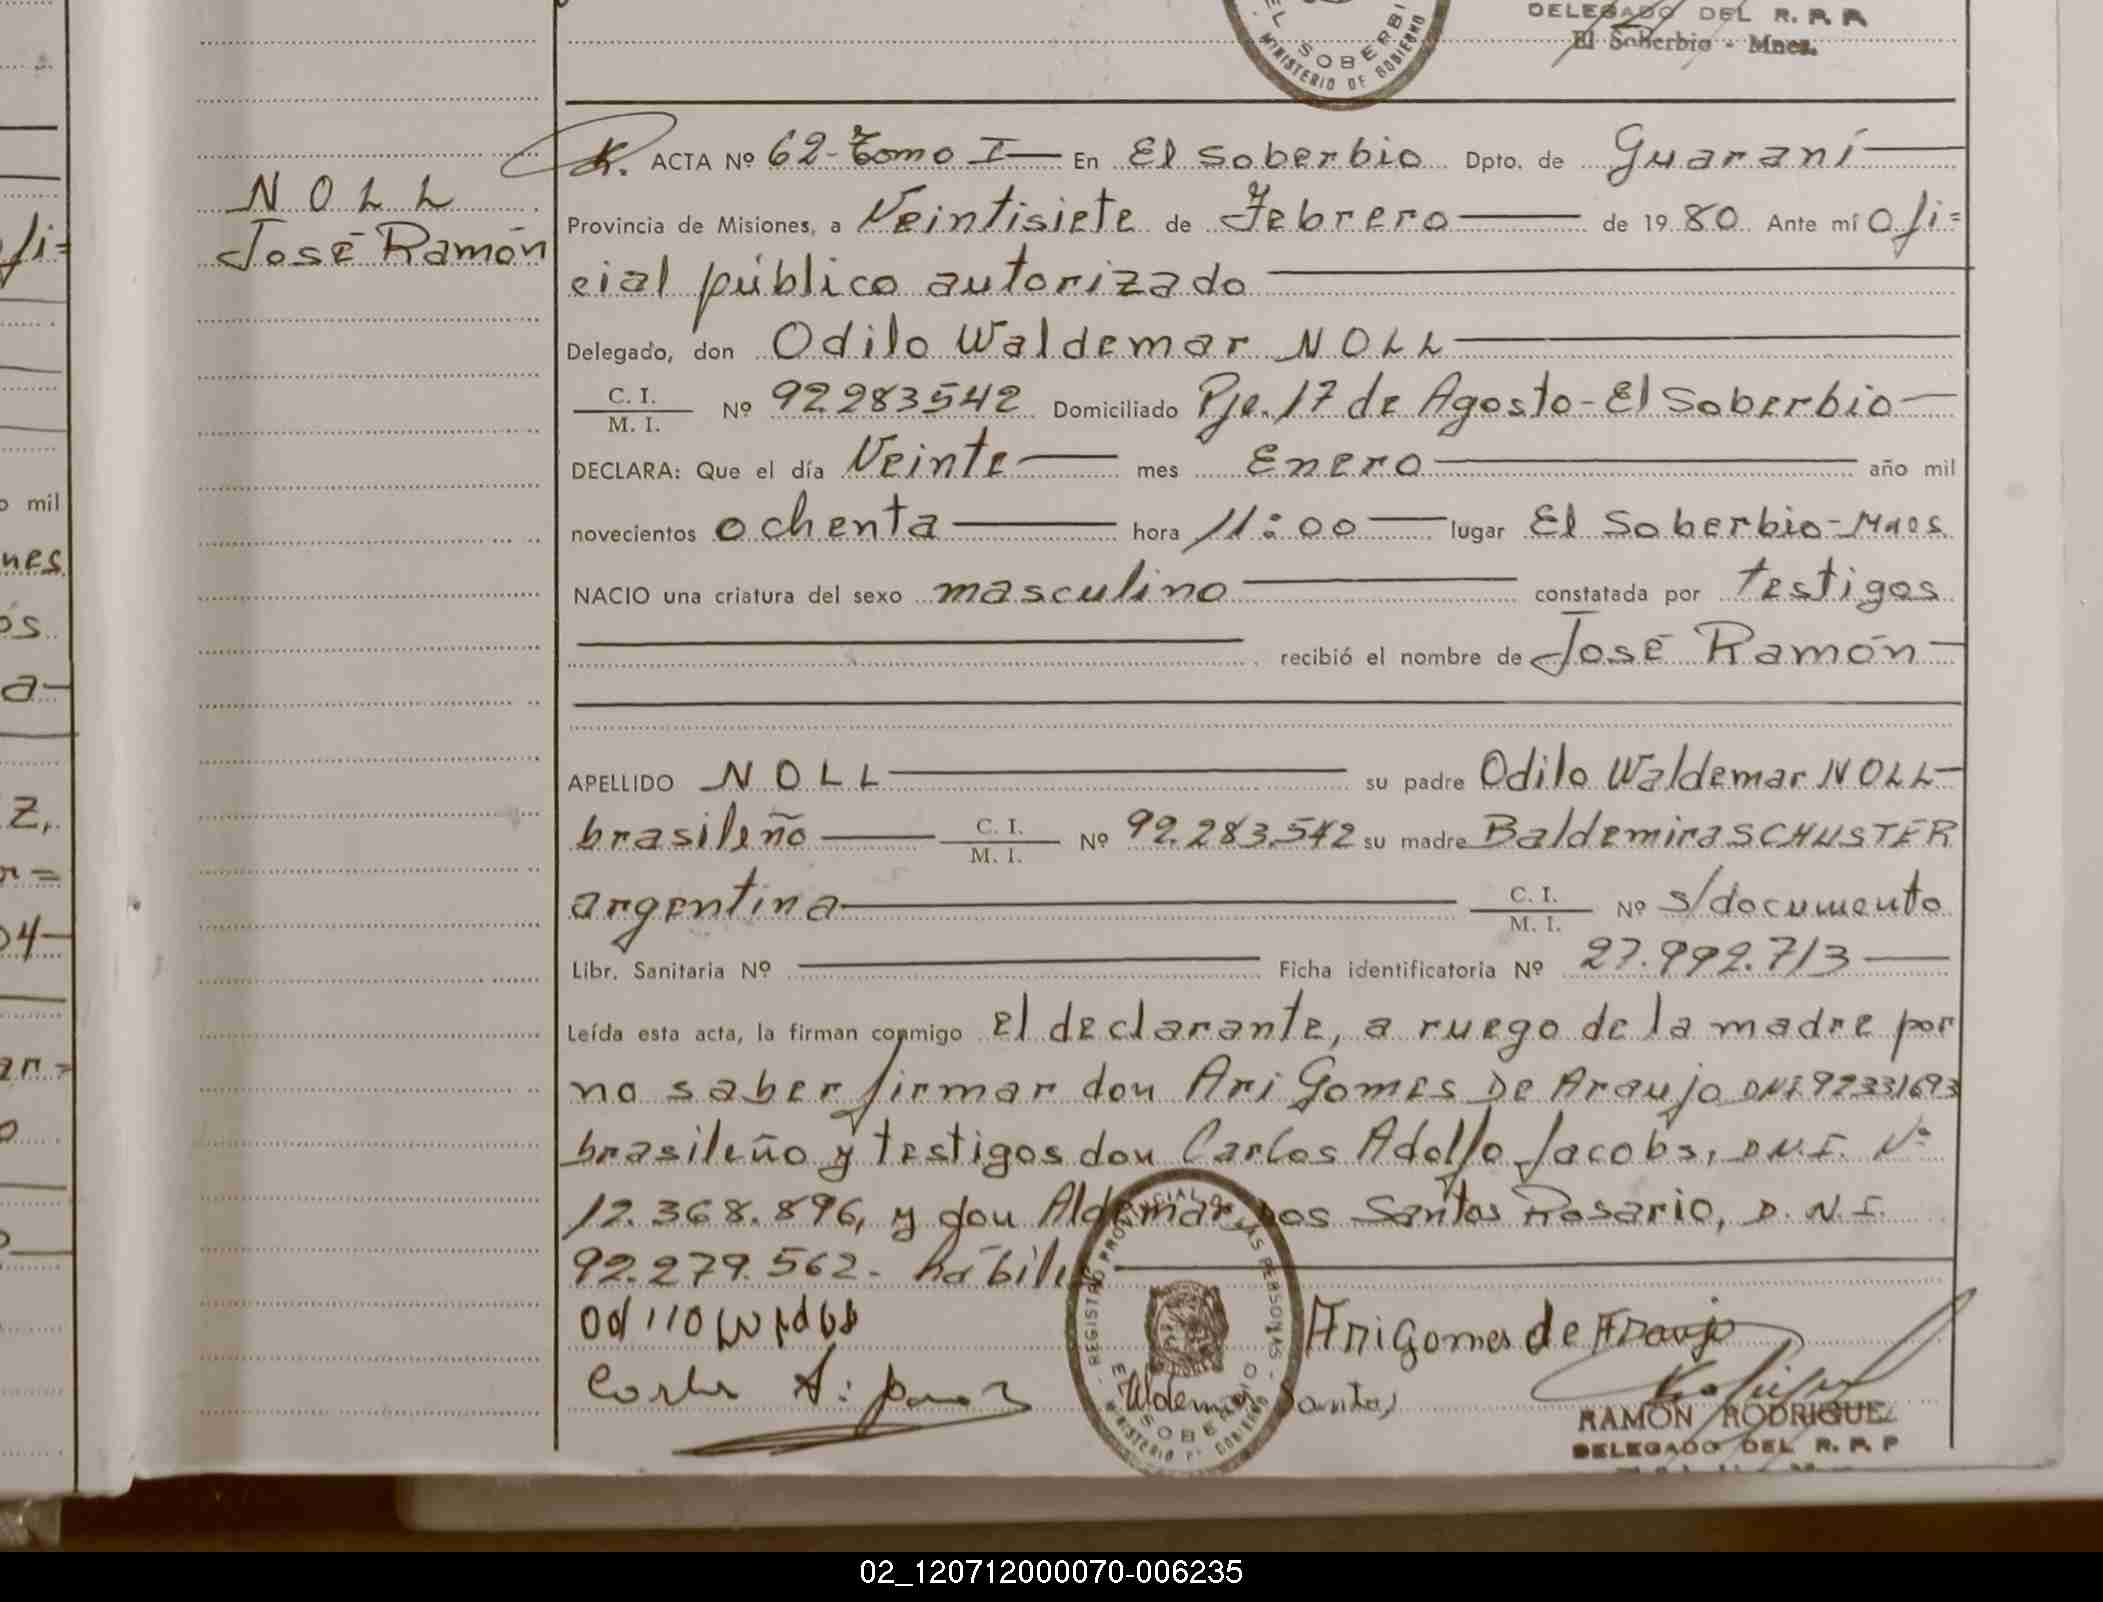 EL SOBERBI
MINISTERIO DE GOBIERNO
DELEGADO DEL R. P. P.
El Soberbio - Mnes.
NOLL
José Ramón
ACTA Nº 62-Tomo I En El Soberbio Dpto. de Guaraní
Provincia de Misiones, a Veintisiete de Febrero de 19 80 Ante mí Ofi=
cial público autorizado
Delegado, don Odilo Waldemar NOLL
C. I.
M. I.
Nº 92283542 Domiciliado Pje. 17 de Agosto - El Soberbio
DECLARA: Que el día Veinte mes Enero año mil
novecientos ochenta hora 11:00 lugar El Soberbio - Mnes.
NACIO una criatura del sexo masculino constatada por testigos
recibió el nombre de José Ramón
APELLIDO NOLL su padre Odilo Waldemar NOLL
brasileño C. I. M. I. Nº 92.283.542 su madre Baldemira SCHUSTER
argentina C. I. M. I. Nº s/documento
Libr. Sanitaria Nº Ficha identificatoria Nº 27.992.713
Leída esta acta, la firman conmigo el declarante, a ruego de la madre por
no saber firmar don Ari Gomes De Araujo DNI 92331693
brasileño y testigos don Carlos Adolfo Jacobs, D.N.I. Nº
12.368.896, y don Aldemar Dos Santos Rosario, D.N.I.
92.279.562. hábiles
REGISTRO PROVINCIAL DE LAS PERSONAS
EL SOBERBIO
MINISTERIO DE GOBIERNO
Ari Gomes de Araujo
Aldemar Santos
RAMÓN RODRIGUEZ
DELEGADO DEL R. P. P
02_120712000070-006235